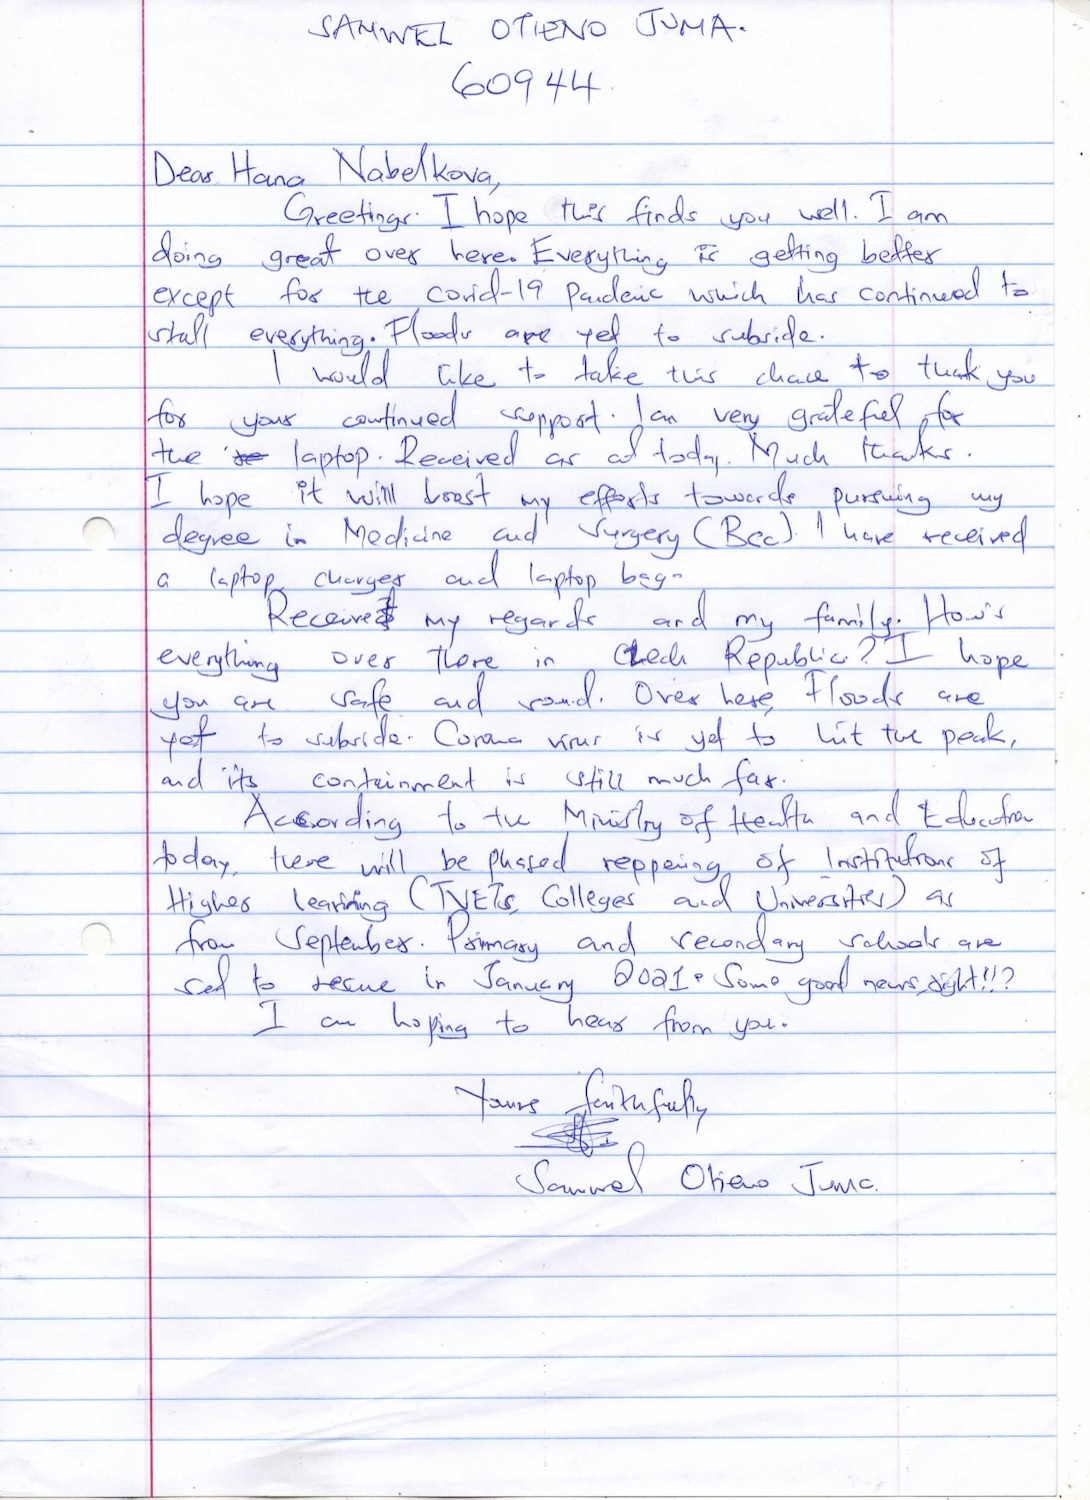 SAMWEL OTIENO JUMA.
60944.
Dear Hana Nabelkova,
Greetings. I hope this finds you well. I am
doing great over here. Everything is getting better
except for the covid-19 Pandemic which has continued to
stall everything. Floods are yet to subside.
I would like to take this chance to thank you
for your continued support. I am very grateful for
the laptop. Received as of today. Much thanks.
I hope it will boost my efforts towards pursuing my
degree in Medicine and Surgery (Bsc). I have received
a laptop, charger and laptop bag.
Receive my regards and my family. How's
everything over there in Czech Republic? I hope
you are safe and sound. Over here, Floods are
yet to subside. Corona virus is yet to hit the peak,
and its containment is still much far.
According to the Ministry of Health and Education
today, there will be phased reopening of Institutions of
Higher learning (TVETs, Colleges and Universities) as
from September. Primary and secondary schools are
set to resume in January 2021. Some good news, right!!?
I am hoping to hear from you.
Yours faithfully,
Samwel Otieno Juma.